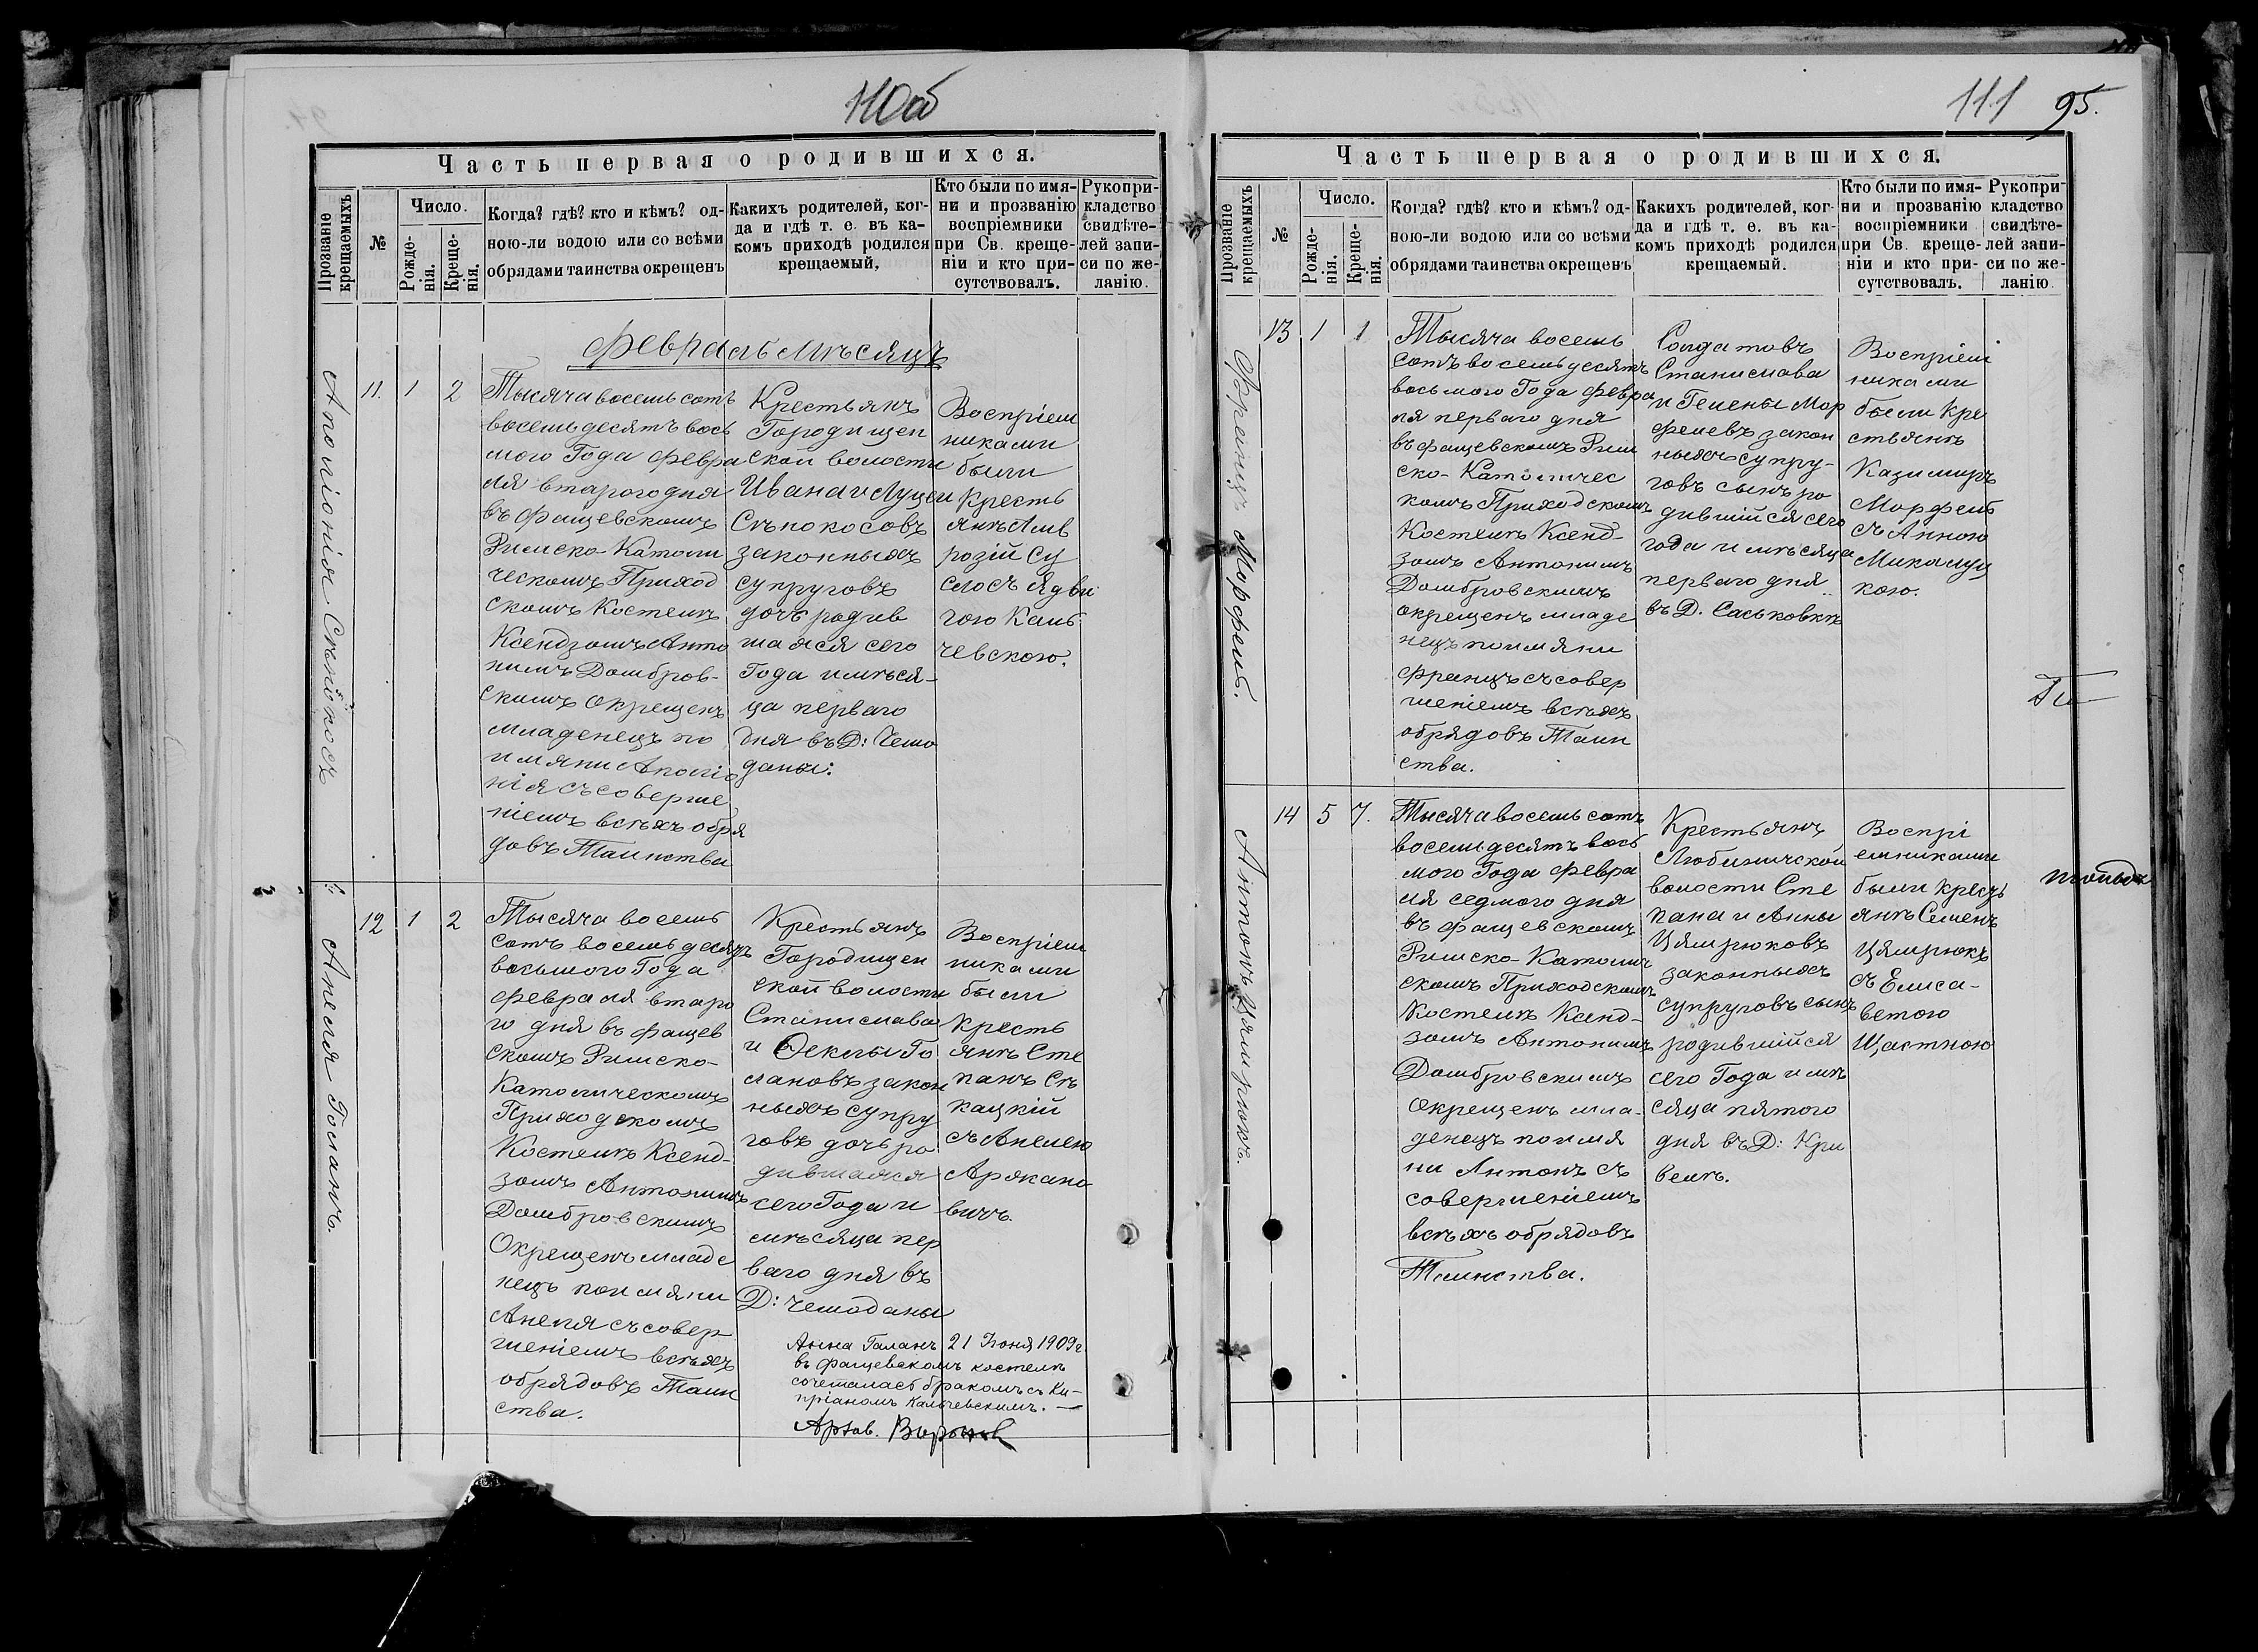 110об
Часть первая о родившихся.
Прозваніе крещаемыхъ
№
Число.
Рожде-
нія.
Креще-
нія.
Когда? гдѣ? кто и кѣмъ? од-
ною-ли водою или со всѣми
обрядами таинства окрещенъ
Какихъ родителей, ког-
да и гдѣ т. е. въ ка-
комъ приходѣ родился
крещаемый,
Кто были по имя-
ни и прозванію
воспріемники
при Св. креще-
ніи и кто при-
сутствовалъ.
Рукопри-
кладство
свидѣте-
лей запи-
си по же-
ланію.
Февраль мѣсяцъ
Аполіонія Сѣнокосъ
11. 1 2
Тысяча восемь сотъ
восемьдесятъ вось
мого Года Февра
ля второго дня
въ Фащевскомъ
Римско-Католи
ческомъ Приход
скомъ Костелѣ
Ксендзомъ Анто
нимъ Домбров-
скимъ окрещенъ
младенецъ по
имяни Аполіо
нія съ соверше
ніемъ всѣхъ обря
довъ Таинства
Крестьянъ
Городищен
ской волости
Ивана и Луціи
Сѣнокосовъ
законныхъ
супруговъ
дочь родив
шаяся сего
Года и мѣся-
ца перваго
дня въ Д: Чемо
даны.
Воспріем
никами
были
Кресть
янъ Амв
розій Су
слосъ Ядви
гою Каль
чевскою.
Анеля Голанъ.
12 1 2
Тысяча восемь
сотъ восемьдесятъ
восьмого Года
Февраля второ
го дня въ Фащев
скомъ Римско-
Католическомъ
Приходскомъ
Костелѣ Ксенд-
зомъ Антонимъ
Домбровскимъ
Окрещенъ младе
нецъ по имяни
Анеля съ совер-
шеніемъ всѣхъ
обрядовъ Таин
ства.
Крестьянъ
Городищен
ской волости
Станислава
и Феклы Го
лановъ закон
ныхъ супру
говъ дочь ро
дившаяся
сего Года и
мѣсяца пер
ваго дня въ
Д: Чемоданы
Воспріем
никами
были
Кресть
янъ Сте
панъ Сѣ
кацкій
съ Анелею
Аркано
вичъ.
Анна Галанъ 21 Іюня 1909 г
въ Фащевскомъ костелѣ
сочеталась бракомъ съ Ки-
пріаномъ Кальчевскимъ. —
111 95.
Часть первая о родившихся.
Прозваніе крещаемыхъ
№
Число.
Рожде-
нія.
Креще-
нія.
Когда? гдѣ? кто и кѣмъ? од-
ною-ли водою или со всѣми
обрядами таинства окрещенъ
Какихъ родителей, ког-
да и гдѣ т. е. въ ка-
комъ приходѣ родился
крещаемый.
Кто были по имя-
ни и прозванію
воспріемники
при Св. креще-
ніи и кто при-
сутствовалъ.
Рукопри-
кладство
свидѣте-
лей запи-
си по же-
ланію
Францъ Морфель.
13 1 1
Тысяча восемь
сотъ восемьдесятъ
восьмого Года Февра
ля перваго дня
въ Фащевскомъ Рим
ско-Католичес
комъ Приходскомъ
Костелѣ Ксенд-
зомъ Антонимъ
Домбровскимъ
окрещенъ младе
нецъ по имяни
Францъ съ совер
шеніемъ всѣхъ
обрядовъ Таин
ства.
Солдатовъ
Станислава
и Гелены Мор
фелевъ закон
ныхъ супру-
говъ сынъ ро
дившійся сего
года и мѣсяца
перваго дня
въ Д. Саськовкѣ
Воспріем
никами
были Кре
стьянъ
Казимиръ
Морфель
съ Анною
Микалуц
кою.
Антонъ Цямрюкъ.
14 5 7.
Тысяча восемь сотъ
восемдесятъ вось
мого Года Февра
ля седмого дня
въ Фащевскомъ
Римско-Католич
скомъ Приходскомъ
Костелѣ Ксенд-
зомъ Антонимъ
Домбровскимъ
Окрещенъ мла-
денецъ по имя
ни Антонъ съ
совершеніемъ
всѣхъ обрядовъ
Таинства.
Крестьянъ
Любиничской
волости Сте
пана и Анны
Цямрюковъ
законныхъ
супруговъ сынъ
родившійся
сего Года и мѣ
сяца пятого
дня въ Д: Кри
велѣ.
Воспрі
емниками
были крест
янъ Семенъ
Цямрюкъ
съ Елиса-
ветою
Щастною